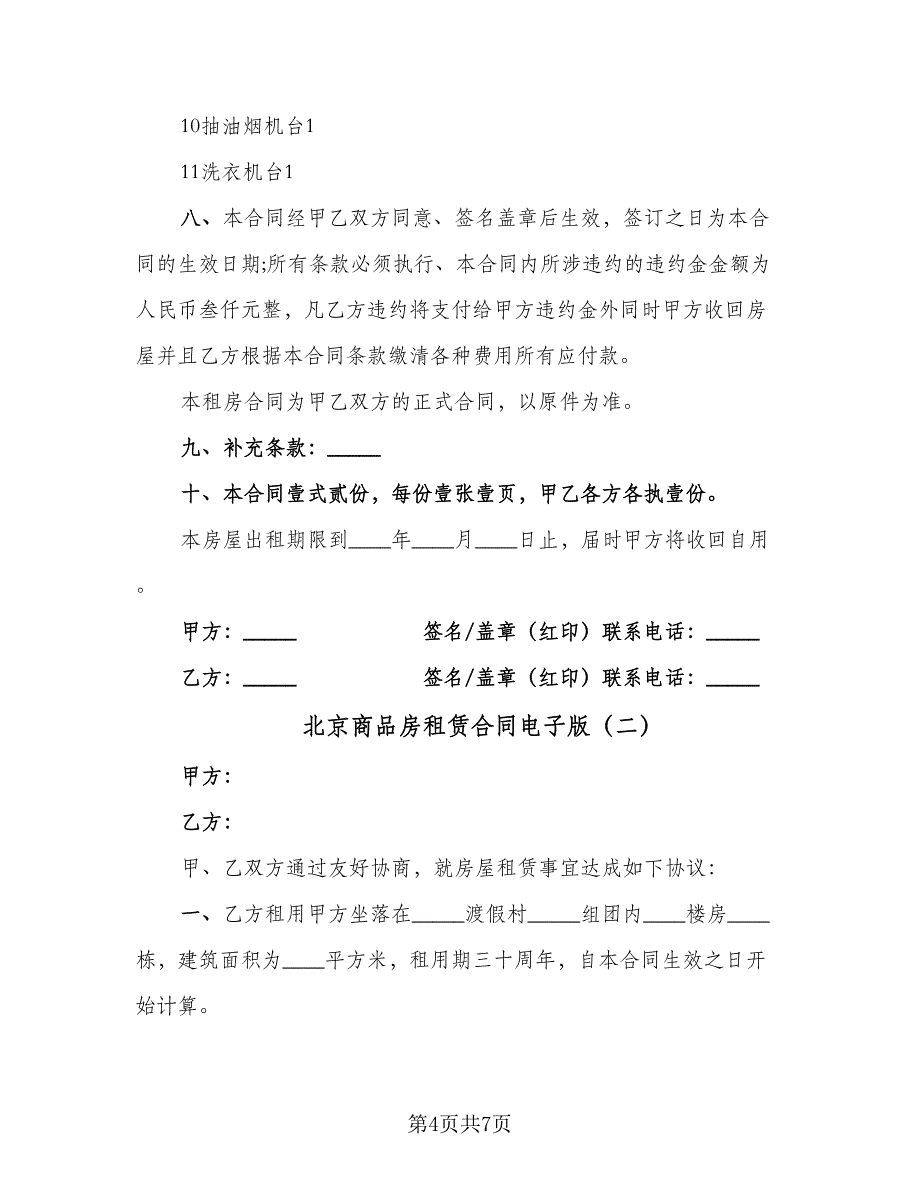 10抽油烟机台1
11洗衣机台1
八、本合同经甲乙双方同意、签名盖章后生效，签订之日为本合
同的生效日期;所有条款必须执行、本合同内所涉违约的违约金金额为
人民币叁仟元整，凡乙方违约将支付给甲方违约金外同时甲方收回房
屋并且乙方根据本合同条款缴清各种费用所有应付款。
本租房合同为甲乙双方的正式合同，以原件为准。
九、补充条款：_____
十、本合同壹式贰份，每份壹张壹页，甲乙各方各执壹份。
本房屋出租期限到____年____月____日止，届时甲方将收回自用
。
甲方：_____ 签名/盖章（红印）联系电话：_____
乙方：_____ 签名/盖章（红印）联系电话：_____
北京商品房租赁合同电子版（二）
甲方：
乙方：
甲、乙双方通过友好协商，就房屋租赁事宜达成如下协议：
一、乙方租用甲方坐落在_____渡假村_____组团内____楼房____
栋，建筑面积为____平方米，租用期三十周年，自本合同生效之日开
始计算。
第4页共7页